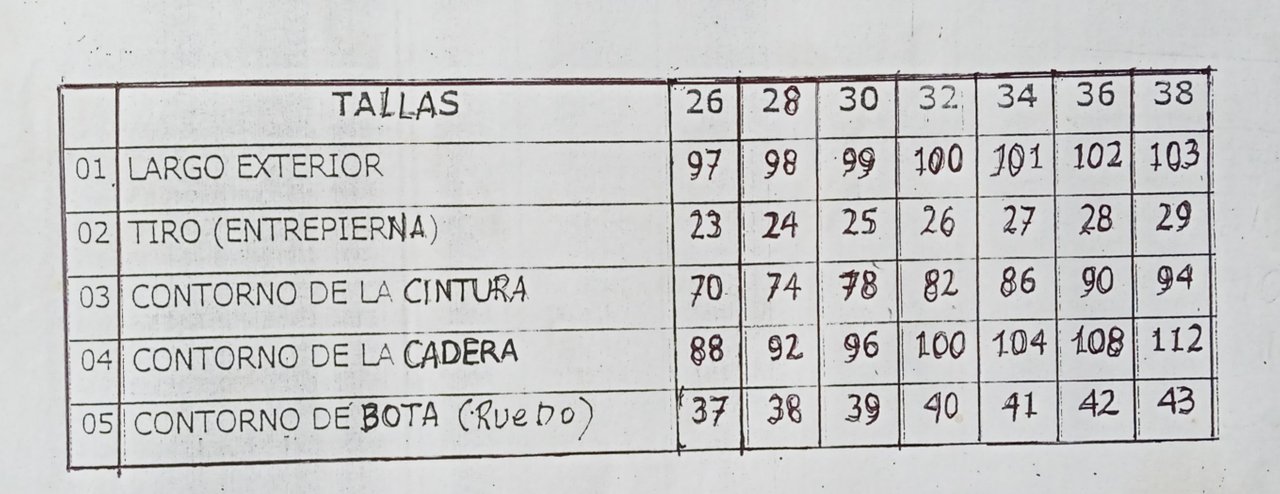 TALLAS 26 28 30 32 34 36 38
01 LARGO EXTERIOR 97 98 99 100 101 102 103
02 TIRO (ENTREPIERNA) 23 24 25 26 27 28 29
03 CONTORNO DE LA CINTURA 70 74 78 82 86 90 94
04 CONTORNO DE LA CADERA 88 92 96 100 104 108 112
05 CONTORNO DE BOTA (RUEDO) 37 38 39 40 41 42 43